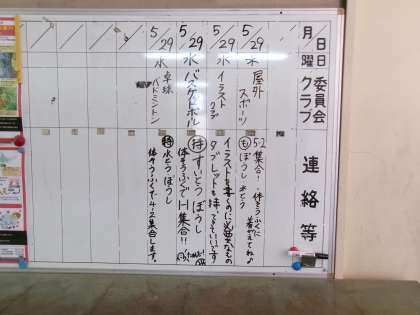 月/日
曜日
委員会
クラブ
連絡等
5/29
水
屋外
スポーツ
5-2 集合!!
体そうふくに
着がえてね♪
も ぼうし 水とう
5/29
水
イラスト
クラブ
イラストを書くのに必要なもの
タブレットも持ってきていいです
5/29
水
バスケットボール
持 すいとう ぼうし
体そうふくで 1-1 集合!!
5/29
水
卓球
バドミントン
持 水とう ぼうし
体そうふくで 4-2 集合します。